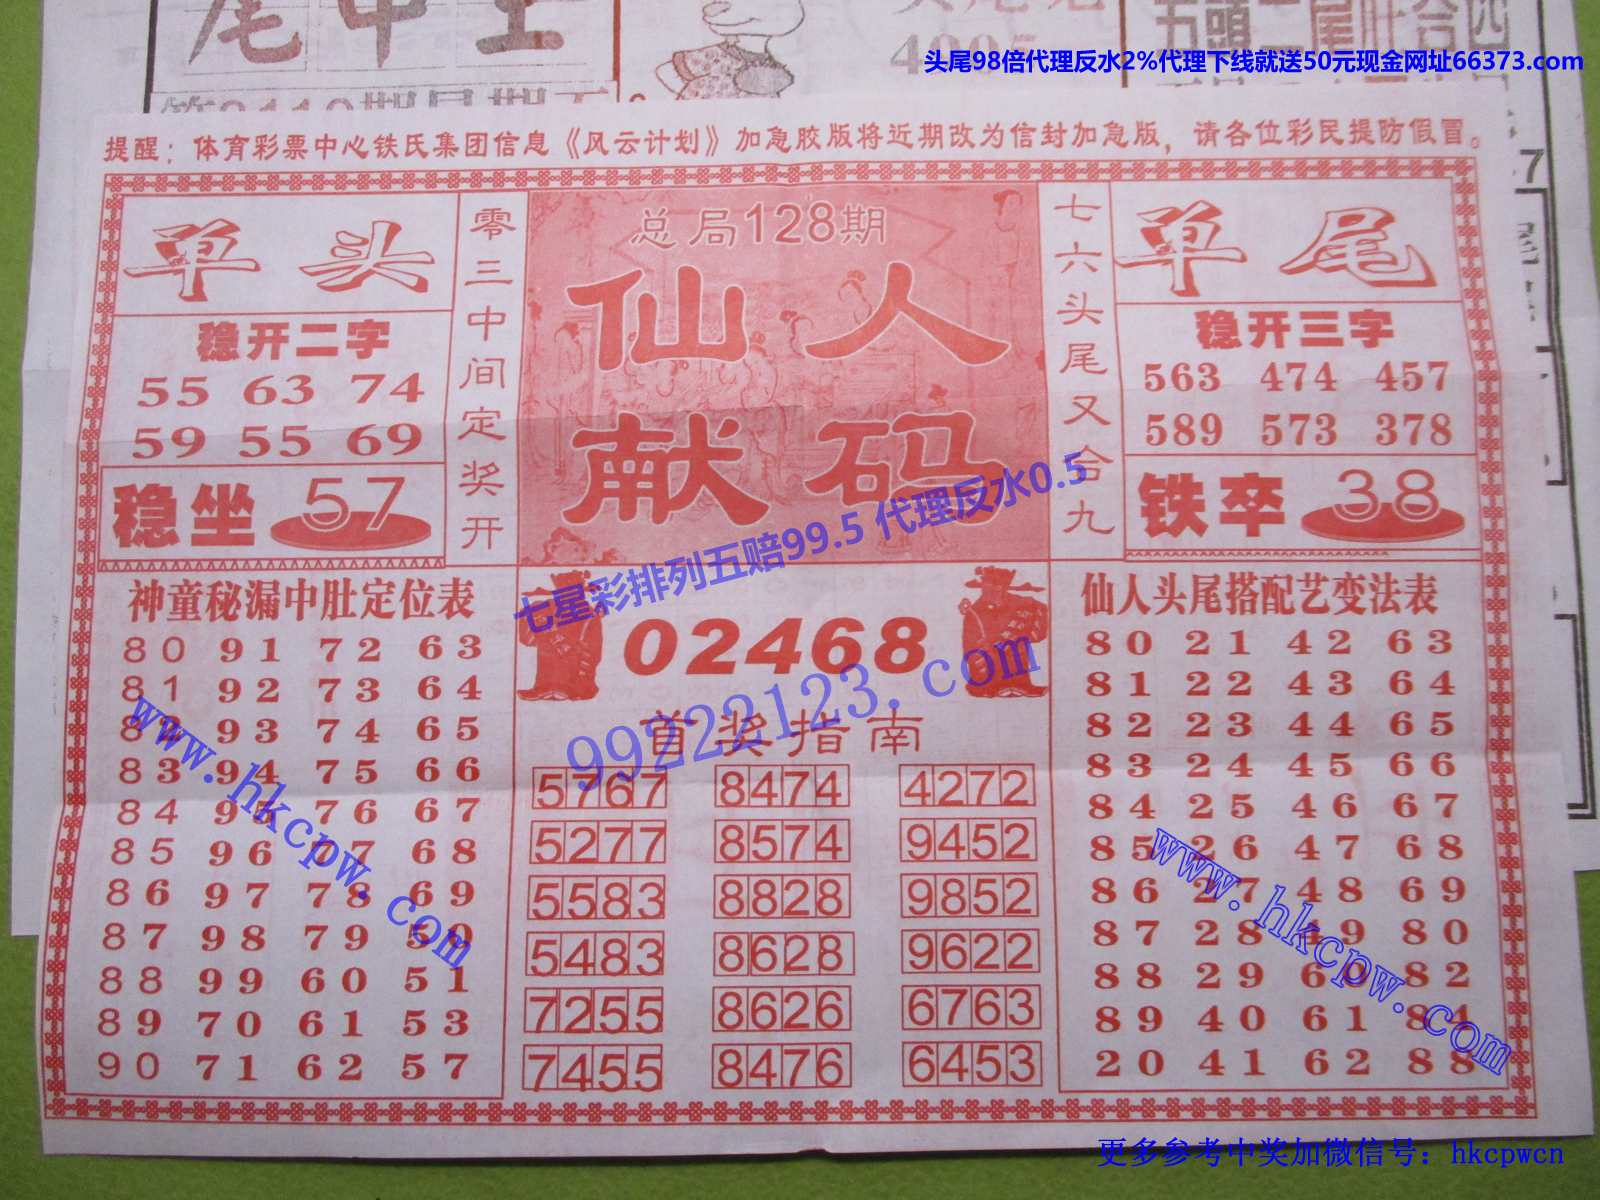 尾中王
头尾98倍代理反水2%代理下线就送50元现金网址66373.com
提醒：体育彩票中心铁氏集团信息《风云计划》加急胶版将近期改为信封加急版，请各位彩民提防假冒。
单头
稳开二字
55 63 74
59 55 69
稳坐 57
零三中间定奖开
总局128期
仙人
献码
七六头尾又合九
单尾
稳开三字
563 474 457
589 573 378
铁卒 38
七星彩排列五赔99.5 代理反水0.5
神童秘漏中肚定位表
80 91 72 63
81 92 73 64
82 93 74 65
83 94 75 66
84 95 76 67
85 96 77 68
86 97 78 69
87 98 79 50
88 99 60 51
89 70 61 53
90 71 62 57
www.hkcpw.com
02468
99222123.com
首奖指南
5767 8474 4272
5277 8574 9452
5583 8828 9852
5483 8628 9622
7255 8626 6763
7455 8476 6453
仙人头尾搭配艺变法表
80 21 42 63
81 22 43 64
82 23 44 65
83 24 45 66
84 25 46 67
85 26 47 68
86 27 48 69
87 28 49 80
88 29 60 82
89 40 61 84
20 41 62 88
www.hkcpw.com
更多参考中奖加微信号：hkcpwcn